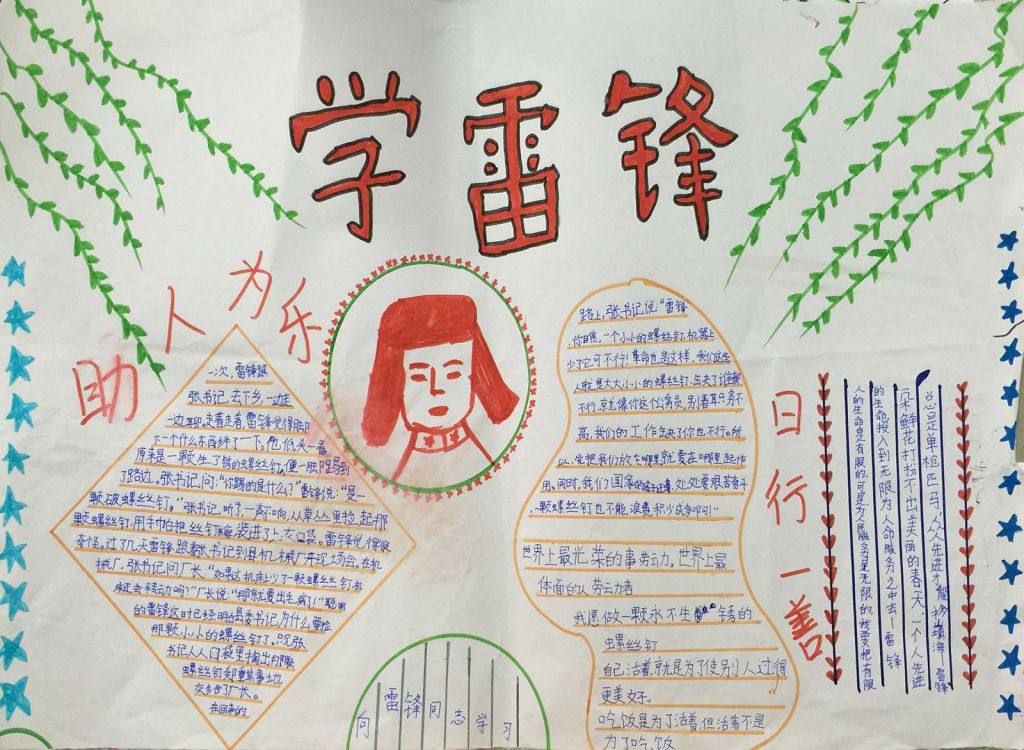 学雷锋
助人为乐
一次,雷锋跟
张书记去下乡,一边走
一边聊,走着走着,雷锋觉得脚
下一个什么东西绊了一下。他低头一看
原来是一颗生了锈的螺丝钉,便一脚踢到
了路边。张书记问:"你踢的是什么?"雷锋说:"是一
颗破螺丝钉。"张书记听了一声不响,从草丛里捡起那
颗螺丝钉,用手巾把丝钉擦装进了上衣口袋。雷锋觉得很
奇怪。过了几天雷锋跟着张书记到县机械厂开现场会。在机
械厂,张书记问厂长"如果这机床少了一颗螺丝钉机
就会转动吗?"厂长说:"那就要出毛病了!"聪明
的雷锋这时已经明白县委书记为什么要捡
那颗小小的螺丝钉了。只见张
书记人人口袋里掏出那颗
螺丝钉郑重其事地
交给了厂长。
在回来的
路上,张书记说:"雷锋
,你瞧,一个小小的螺丝钉,机器上
少了它可不行!革命也是这样,我们这些
人就是大大小小的螺丝钉,缺了谁都
不行,就像你这个公务员,别看职务不
高,我们的工作缺了你也不行。所
以,党把我们放在哪里就要在哪里起作
用。同时,我们国家处处要艰苦奋斗
,一颗螺丝钉也不能浪费,积少成多
世界上最光荣的事劳动。世界上最
体面的人劳动者
我愿做一颗永不生锈的
螺丝钉
自己活着,就是为了使别人过得
更美好。
吃饭是为了活着,但活着不是
为了吃饭
向雷锋同志学习
日行一善
总是单枪匹马,众人先进才能移山填海—雷锋
朵鲜花打扮不出美丽的春天,一个人先进
的生命投入到无限为人命服务之中去—雷锋
人的生命是有限的,可是,为人民服务是无限的,我要把有限